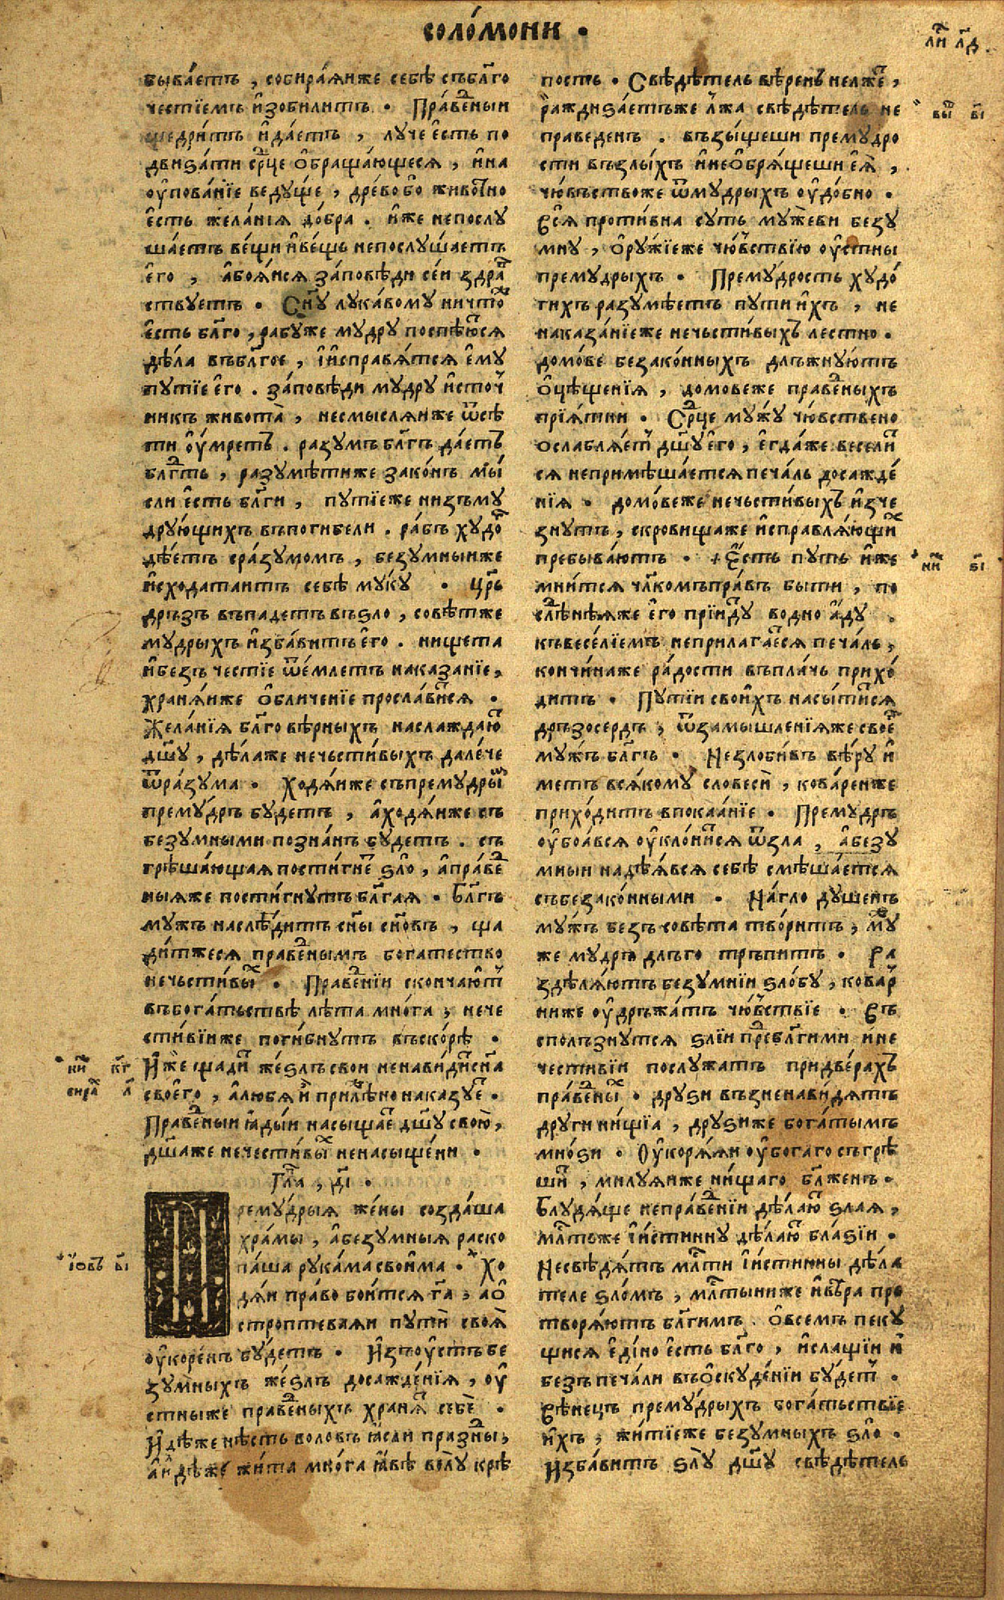 соло́мони .
ли́ л҃д .
быва́етъ , собира́яиже себѣ̀ съ бл҃го
че́стїемъ и҆зоби́литъ . Пра́ведныи
щедри́тъ и҆ да́етъ , лу́че є҆сть по
двиза́ти ср҃це ѻ҆браща́ющееся , и҆ на
ѹ҆пова́нїе веду́ще , дре́во бо живо́тно
є҆сть жела́нїя до́бра . и҆же непослу
шаетъ ве́щи и҆ ве́щь непослу́шаетъ
є҆го̀ , а҆ боя́ися за́повѣди се́и здра́
ствуетъ . Сн҃у лука́вому ничто́же
є҆сть бл҃го , рабу́же му́дру поспѣю́тся
дѣ́ла въ бл҃гое , и҆ испра́вятся є҆му̀
путїе є҆го̀ . за́повѣди му́дру и҆сто́ч
никъ живота̀ , несмы́сляиже ѿ сѣ
ти ѹ҆́мретъ . ра́зумъ бл҃гъ да́етъ
бл҃гть , разумѣ́тиже зако́нъ мы́
сли є҆сть бл҃ги , путїе́же низъ му
друющихъ въ поги́бели . ра́бъ худо́
дѣ́етъ сра́зумомъ , безу́мныиже
и҆схода́таитъ себѣ̀ му́ку . цр҃ь
дръ́зъ въпаде́тъ въ зло̀ , совѣ́тже
му́дрыхъ и҆зба́витъ є҆го̀ . нищета̀
и҆ безъче́стїе ѿе́млетъ наказа́нїе ,
храня́иже ѻ҆бличе́нїе просла́вится .
Жела́нїя бл҃гове́рныхъ наслажда́ю
дш҃у , дѣ́лаже нечести́выхъ дале́че
ѿ ра́зума . Ходя́иже съ прему́дры
прему́дръ бу́детъ , а҆ ходя́иже съ
безу́мными позна́нъ бу́детъ . съ
грѣша́ющая пости́гне зло̀ , а҆ пра́ве
ныяже пости́гнутъ бл҃га́я . Бл҃гъ
му́жъ наслѣ́дитъ сн҃ы сн҃овъ , ща
ди́тжеся пра́веднымъ бога́тество
нечести́вы . Пра́веднїи сконча́ют
въ бога́тьствѣ лѣ́та мно́га , нече
сти́вїиже поги́бнутъ въско́рѣ .
И҆же щади́ же́злъ свои ненави́дитъ сн҃а
своего̀ , а҆ любя́и прилѣ́жно наказу́е .
Пра́ведныи ꙗ҆ды́и насыща́е дш҃у свою̀ ,
дш҃аже нечести́вы ненасы́щени .
Гл҃а , д҃і .
ремудрыя же́ны созда́ша
хра́мы , а҆ безу́мныя раско
па́ша рука́ма свои́ма . Хо
дя́и пра́во бои́тся г҃а , а
стропте́ваяи пути́ своя̀
ѹ҆коре́нъ бу́детъ . И҆зъ ѹ҆́стъ бе
зу́мныхъ же́злъ досажде́нїя , ѹ҆
стны́же пра́ведныхъ храня́ себѐ .
И҆дѣ́же нѣ́сть воловъ ꙗ҆сли пра́зны ,
а҆ идѣ́же жи́та мно́га ꙗ҆́вѣ волу́ крѣ
пость . Свѣдѣ́тель вѣ́ренъ нелже ,
ражди́заетъже лжа̀ свѣдѣ́тель не
пра́веденъ . възы́щеши прему́дро
сти въ злы́хъ и҆ не ѻ҆бря́щеши є҆я̀ ,
чю́вьствоже ѿ му́дрыхъ ѹ҆до́бно .
Вся̀ проти́вна суть му́жеви безу
мну , ѻ҆ру́жїеже чю́вствїю ѹ҆стны̀
прему́дрыхъ . Прему́дрость худо́
гихъ разумѣ́етъ пути́ и҆хъ , не
наказа́нїеже нечьсти́выхъ ле́стно .
домо́ве безако́нныхъ длъжну́ютъ
ѻ҆цѣще́нїя , домовеже пра́ведныхъ
прїя́тни . Ср҃це му́жу чю́вствено
ѻслабля́ет дш҃у є҆го̀ , є҆гда́же весели́
ся непримѣша́ется печа́ль досажде́
нїя . домо́веже нечьсти́выхъ и҆зче
знутъ , скровищаже и҆справля́ющи
пребыва́ютъ . Є҆́сть пу́ть и҆же
мни́тся чл҃комъ пра́въ бы́ти , по
слѣ́дняяже є҆го̀ прїи́ду во дно а҆́ду .
къ весе́лїемъ неприлага́ется печа́ль ,
кончи́наже ра́дости въ пла́чь прихо́
дитъ . Пути́и свои́хъ насы́тится
дръзосе́рдъ , ѿ замышле́нїяже своє
му́жъ бл҃гъ . Незло́бивъ вѣ́ру и҆
метъ вся́кому словесѝ , кова́рениже
прихо́дитъ впокаа́нїе . Прему́дръ
ѹ҆боа́вся ѹ҆клони́ся ѿ зла , а҆ безу́
мныи надѣ́явся себѣ̀ смѣша́ется
съ безако́нными . На́гло ду́шенъ
му́жъ безъ совѣ́та твори́тъ , му́
же му́дръ длъго тръпи́тъ . Ра
здѣля́ютъ безу́мнїи зло́бу , кова́р
ниже ѹ҆дръжа́тъ чю́вствїе . Въ
спо́лзнутся злїи пре́дъ бл҃ги́ми и҆ не
чести́вїи послу́жатъ при две́рахъ
пра́ведны . дру́зи възненави́дятъ
други ни́щїа , дру́зиже бога́тымъ
мно́зи . Ѹкоря́яи ѹ҆бо́гаго съгрѣ
ши́ , ми́луяиже ни́щаго бл҃же́нъ .
Блудя́ще непра́веднїи дѣ́лаю зла́я ,
мл҃тьже и҆ и́стинну дѣ́лаю бла́зїи .
Несвѣдя́тъ мл҃ти и҆ и́стинны дѣ́ла
теле зло́мъ , мл҃тыниже и҆ вѣ́ра пре
творя́ютъ бл҃ги́мъ . ѻ҆ всемъ пеку́
щися є҆ди́но є҆сть бл҃го , и҆ сла́щїи и҆
безъ печа́ли въ ѻ҆скуде́нїи бу́дет .
Вѣне́цъ прему́дрыхъ бога́тьствїе
и҆́хъ , жи́тїеже безу́мныхъ зло̀ .
И҆зба́витъ злу дш҃у свѣдѣ́тель
ни к҃г
сира́ л҃
іовъ в҃і
вы в҃і
ни ѕ҃і